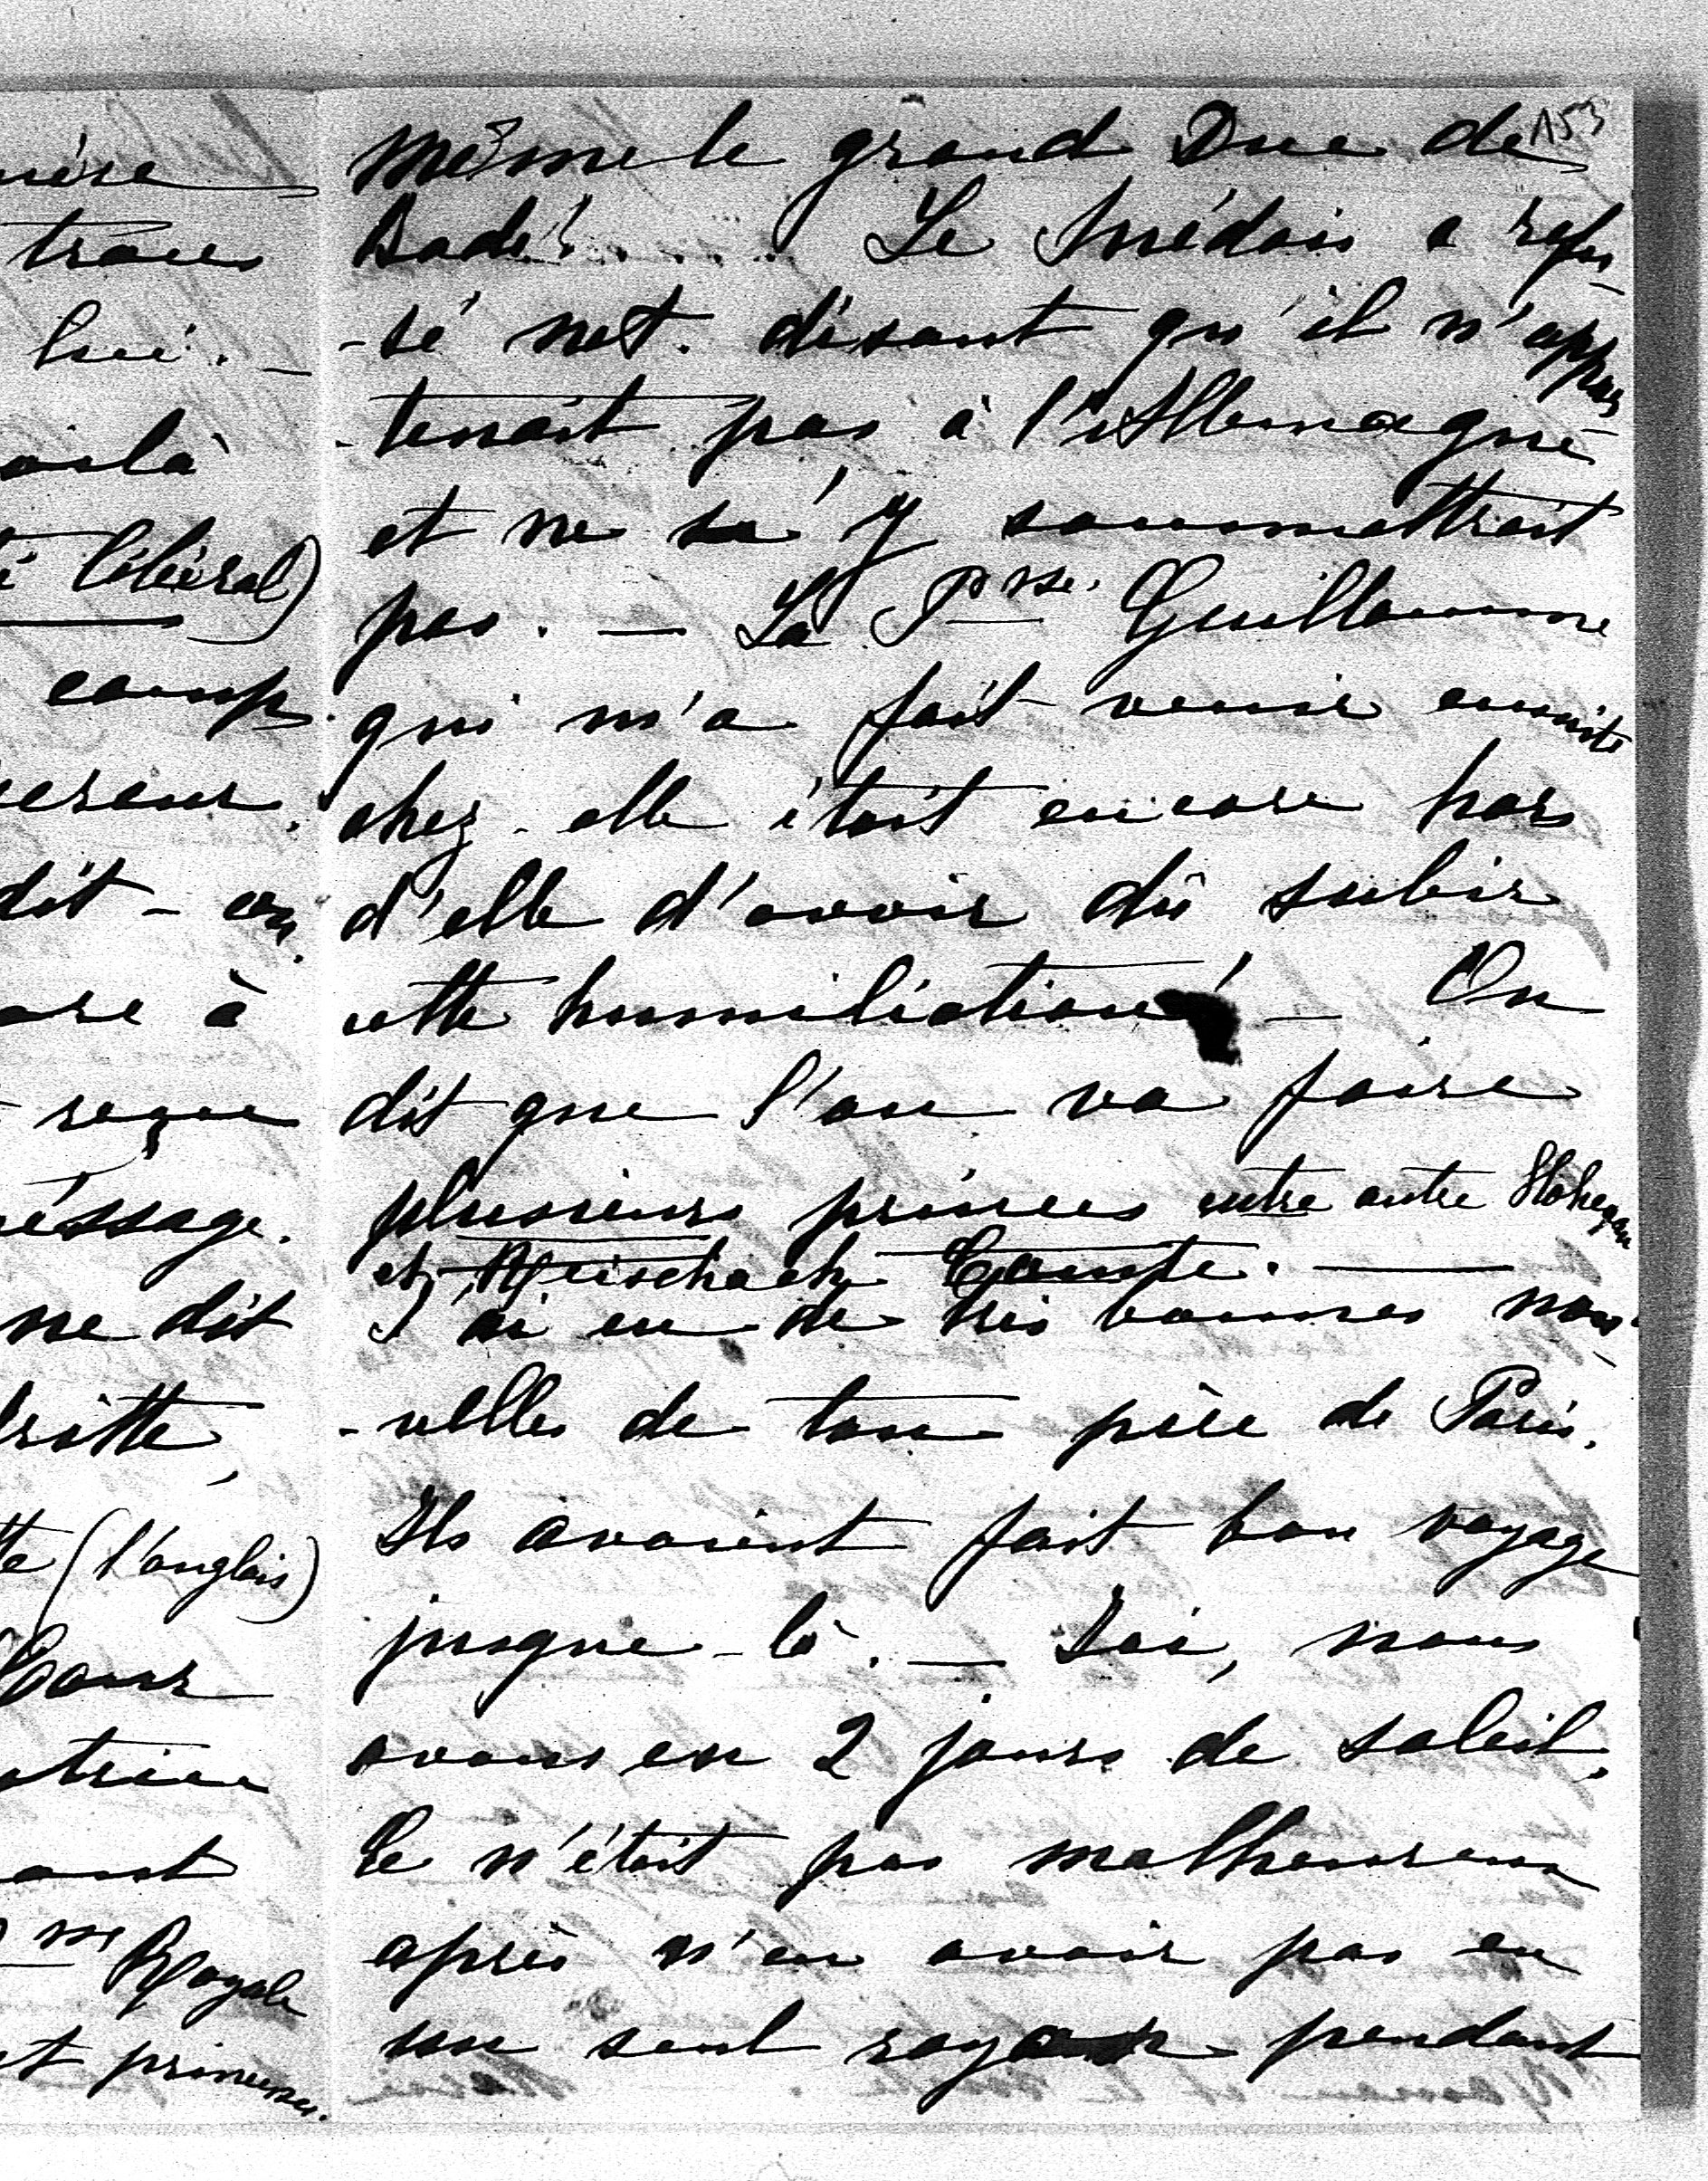 153
même le grand Duc de
Bade! ..... Le Suédois a refu-
-sé net. disant qu'il n'appar
-tenait pas à l'Allemagne
et ne s'y soumettrait
pas. — La Psse. Guillaume
qui m'a fait venir ensuite
chez-elle était encore hors
d'elle d'avoir dû subir
cette humiliation! — On
dit que l'on va faire
plusieurs princes entre autre
et Reischach Comte. —
J'ai eu de très bonnes nou-
-velles de ton père de Paris.
Ils avaient fait bon voyage
jusque-là. — Ici, nous
avons eu 2 jours de soleil,
Ce n'était pas malheureux
après n'en avoir pas eu
un seul rayon pendant
traces
lui. —
libéral)
camp.
dit-on.
à
reçue
ne dit
(l'anglais)
Cour
Royale
princesses.